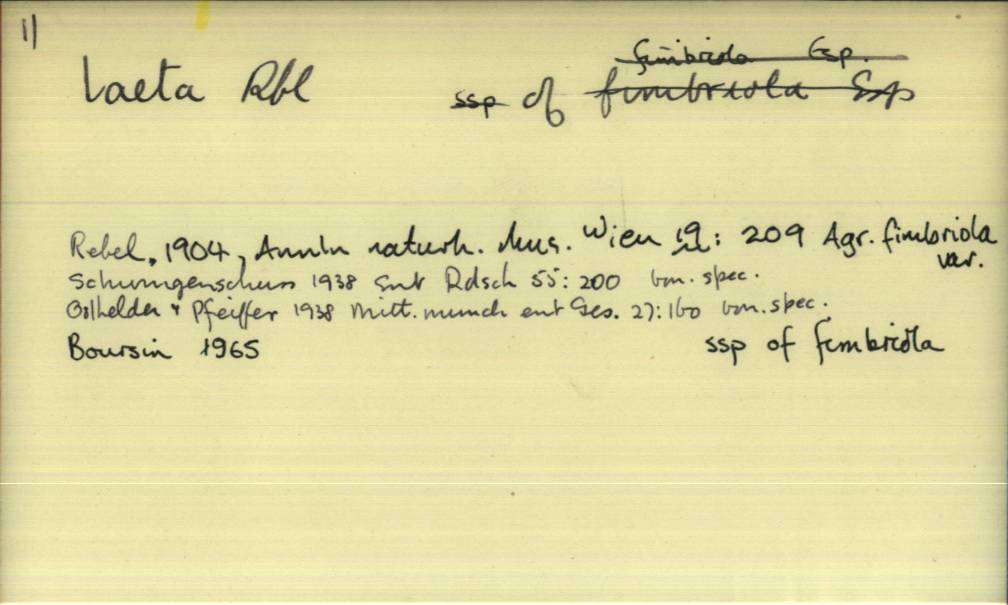 11
fimbriola Esp.
laeta Rbl ssp of fimbriola Esp
Rebel, 1904, Annln naturh. Mus. Wien 19: 209 Agr. fimbriola
var.
Schwingenschuss 1938 Ent Rdsch 55: 200 bon. spec.
Osthelder & Pfeiffer 1938 Mitt. munch ent Ges. 27: 160 bon. spec.
Boursin 1965 ssp of fimbriola